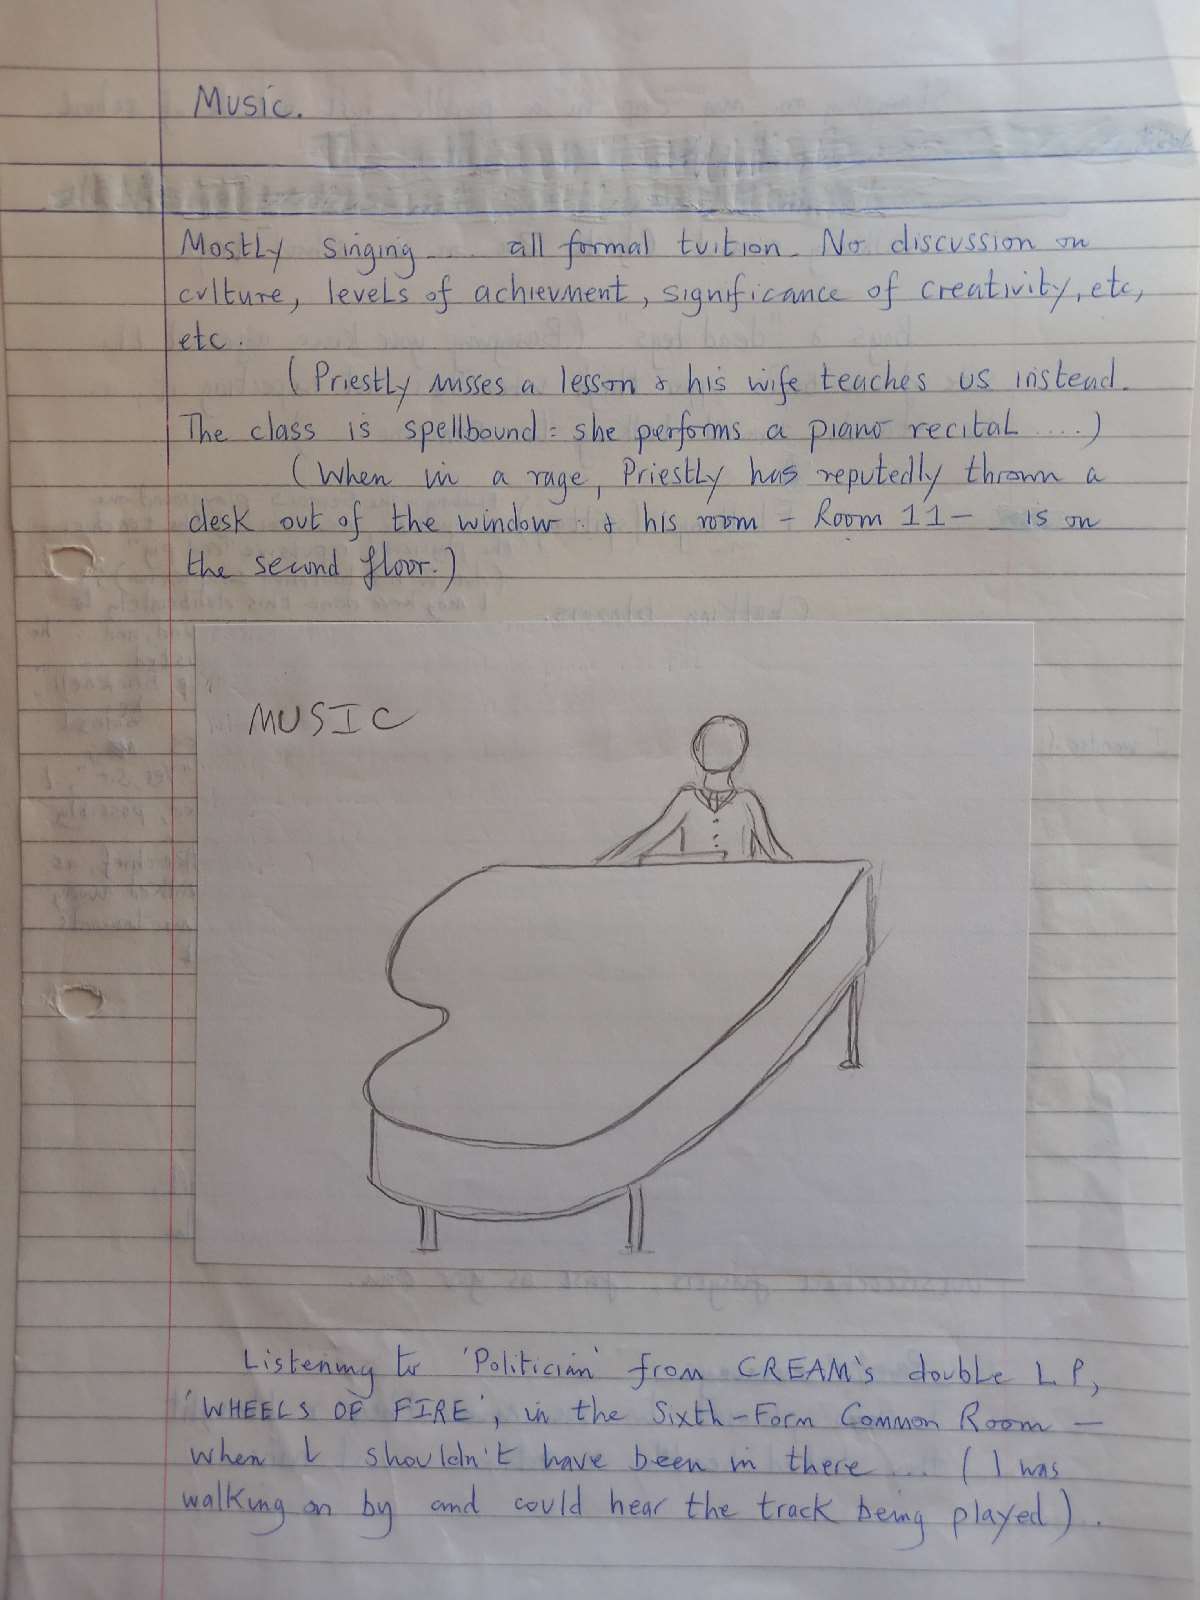 Music.
Mostly singing.... all formal tuition. No discussion on
culture, levels of achievment, significance of creativity, etc,
etc.
(Priestly misses a lesson & his wife teaches us instead.
The class is spellbound: she performs a piano recital ....)
(When in a rage, Priestly has reputedly thrown a
desk out of the window : & his room - Room 11 - is on
the second floor.)
MUSIC
Listening to 'Politician' from CREAM's double L.P,
'WHEELS OF FIRE', in the Sixth-Form Common Room -
when I shouldn't have been in there ... (I was
walking on by and could hear the track being played).